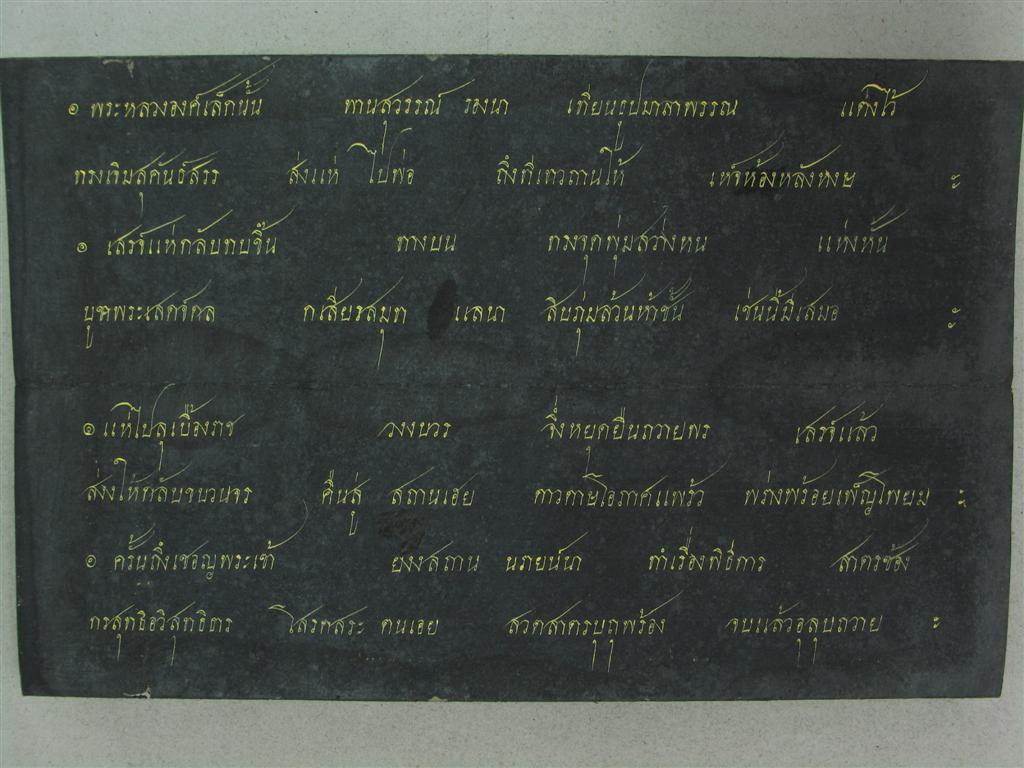 ๏ พระหลวงองค์เล็กนั้น ทานสุวรรณ์ รองนา เทียนธูปมาลาพรรณ แต่งไว้
ทรงเจิมสุคันธ์สรร ส่งแห่ ไปพ่อ ถึงที่เทวถานให้ เหจ์ห้องหลังหงษ ะ
๏ เสรจ์แห่กลับทบขึ้น ทางบน ทรงจุดพุ่มสว่างหน แห่งหั้น
บูชพระเสดจ์กล กเสียรสมุท แลนา สิบภุ่มล้วนห้าชั้น เช่นนี้มีเสมอ ะ
๏ แห่ไปลุเบื้องราช วงงบวร จึ่งหยุดยืนถวายพร เสรจ์แล้ว
ส่งให้กลับจบวนจร คืนสู่ สถานเฮย ดาวดาษโอภาศแพร้ว พร่างพร้อยเพ็ญโพยม ะ
๏ ครั้นถึงเชอญพระเจ้า ยงงสถาน นรายน์นา ทำเรื่องพิธีการ สาตรซ้อง
กรสุทธิอวิสุทธิตร โสรทสระ ตนเฮย สวดสาตรบุถุพร้อง จบแล้วอุลุบถวาย ะ